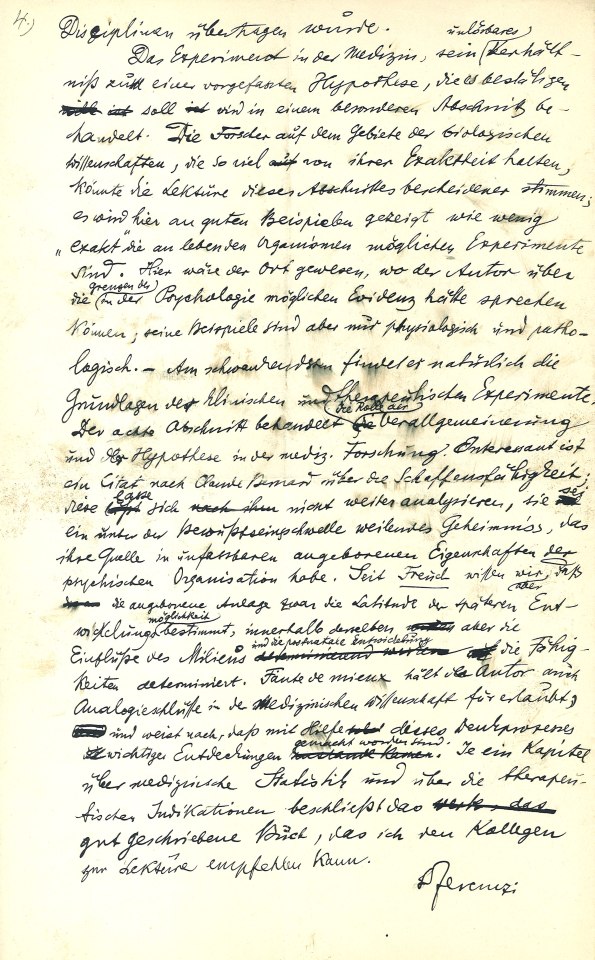 4.)
Disciplinen übertragen würde.
unlösbares
Das Experiment in der Medizin, sein Verhält-
niß zu einer vorgefassten Hypothese, die es bestätigen
soll wird in einem besonderen Abschnitt be-
handelt. Die Forscher auf dem Gebiete der biologischen
Wissenschaften, die so viel von ihrer Exaktheit halten,
könnte die Lektüre dieses Abschnittes bescheidener stimmen;
es wird hier an guten Beispielen gezeigt wie wenig
„exakt" die an lebenden Organismen möglichen Experimente
sind. Hier wäre der Ort gewesen, wo der Autor über
grenzen der
die in der Psychologie möglichen Evidenz hätte sprechen
können; seine Beispiele sind aber nur physiologisch und patho-
logisch. – Am schwankendsten findet er natürlich die
Grundlagen der klinischen und therapeutischen Experimente.
die Rolle der
Der achte Abschnitt behandelt Verallgemeinerung
und der Hypothese in der mediz. Forschung. Interessant ist
ein Citat nach Claude Bernard über die Schaffensfähigkeit;
lasse sei
diese sich nicht weiter analysieren, sie
ein unter der Bewußtseinschwelle weilendes Geheimniss, das
ihre Quelle in unfassbaren angeborenen Eigenschaften der
psychischen Organisation habe. Seit Freud wissen wir, daß
aber
die angeborene Anlage zwar die Latitude der späteren Ent-
möglichkeit
wickelungs bestimmt, innerhalb derselben aber die
und die postnatale Entwickelung
Einflüße des Milieus die Fähig-
keiten determiniert. Faute de mieux hält der Autor auch
Analogieschlüsse in der medizinischen Wissenschaft für erlaubt;
und weist nach, daß mit Hilfe dieses Denkprozesses
gemacht worden sind.
wichtige Entdeckungen Je ein Kapitel
über medizinische Statistik und über die therapeu-
tischen Indikationen beschließt das werk, das
gut geschriebene Buch, das ich den Kollegen
zur Lektüre empfehlen kann.
Ferenczi